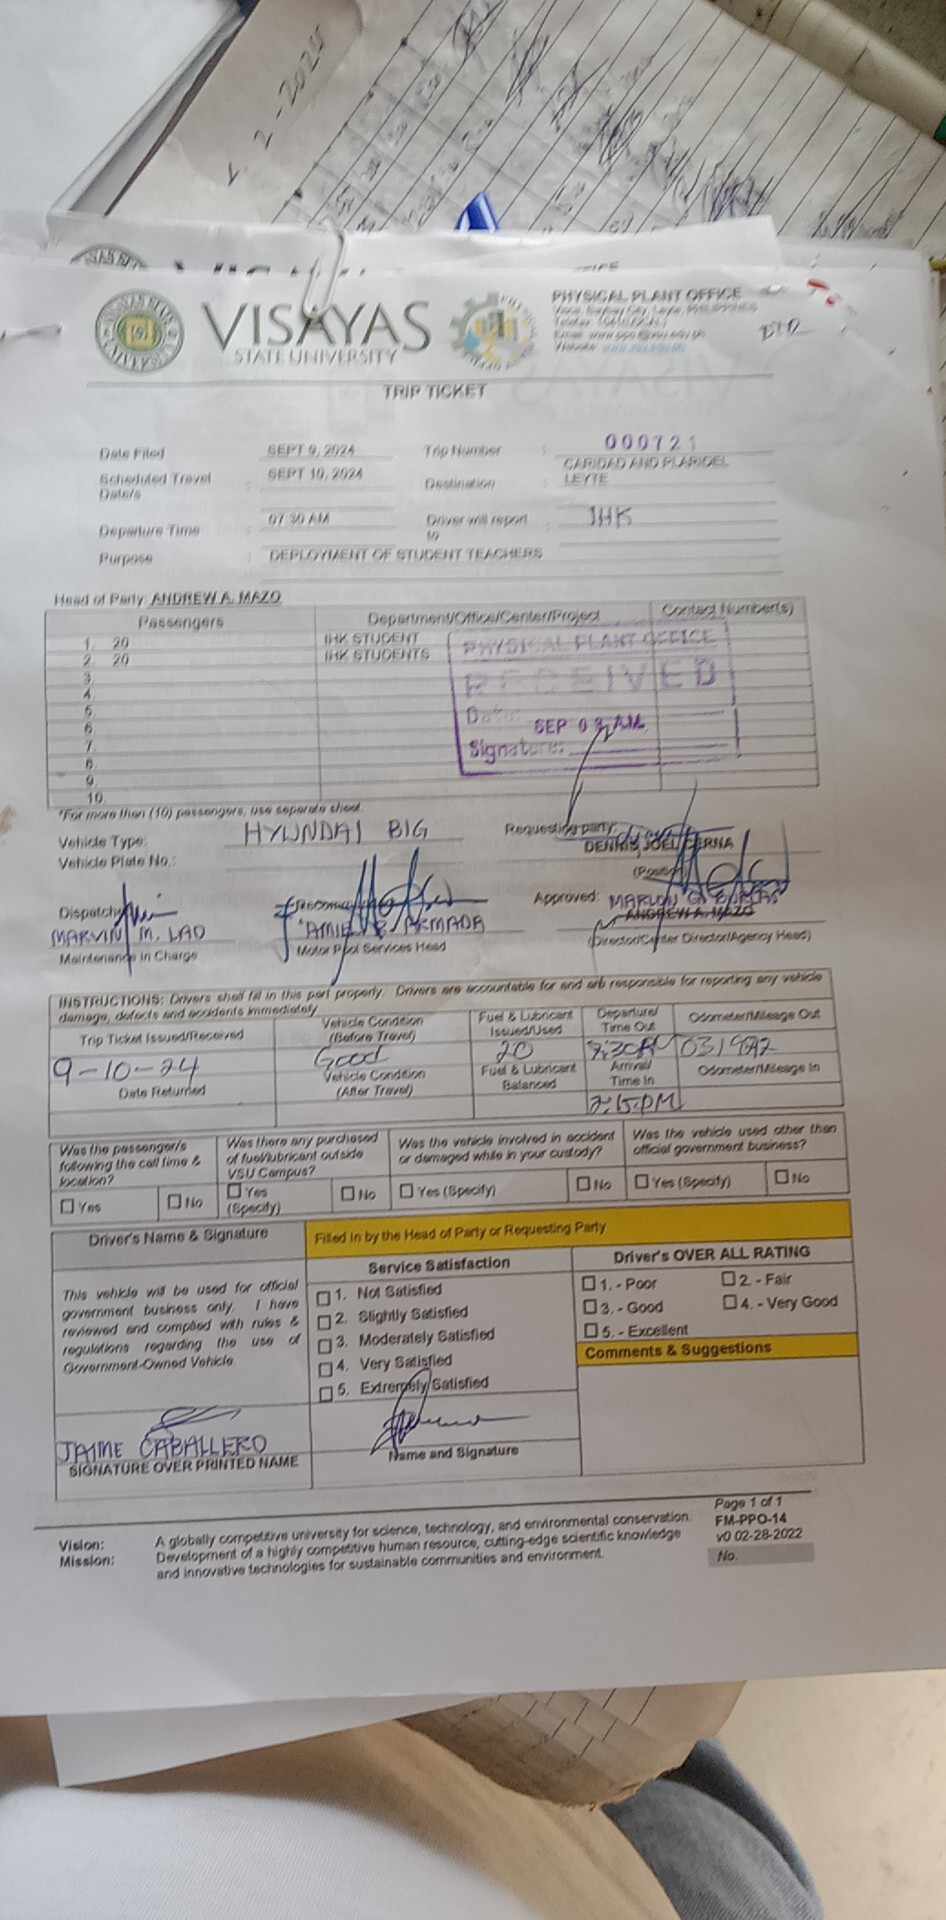 2-2024
VISAYAS
STATE UNIVERSITY
PHYSICAL PLANT OFFICE
TRIP TICKET
Date Filed : SEPT 9, 2024 Trip Number : 000721
Scheduled Travel Date/s : SEPT 10, 2024 Destination : CARIDAD AND PLARIDEL LEYTE
Departure Time : 07:30 AM Driver will report to : IHK
Purpose : DEPLOYMENT OF STUDENT TEACHERS
Head of Party: ANDREW A. MAZO
Passengers Department/Office/Center/Project Contact Number(s)
1. 20 IHK STUDENT
2. 20 IHK STUDENTS
3.
4.
5.
6.
7.
8.
9.
10.
PHYSICAL PLANT OFFICE
RECEIVED
Date:
SEP 09 AM
Signature:
*For more than (10) passengers, use separate sheet.
Vehicle Type: HYUNDAI BIG Requesting party:
Vehicle Plate No.: DENNIS JOEL CERNA
Dispatch
MARVIN M. LAO
Maintenance in Charge
ARMADA
Motor Pool Services Head
Approved: MARLON G.
ANDREW A. MAZO
(Director/Center Director/Agency Head)
INSTRUCTIONS: Drivers shall fill in this part properly. Drivers are accountable for and are responsible for reporting any vehicle
damage, defects and accidents immediately
Trip Ticket Issued/Received Vehicle Condition (Before Travel) Fuel & Lubricant Issued/Used Departure/ Time Out Odometer/Mileage Out
9-10-24 Good 20
Date Returned Vehicle Condition (After Travel) Fuel & Lubricant Balanced Arrival/ Time In Odometer/Mileage In
2:15PM
Was the passenger/s following the call time & location?
☐ Yes ☐ No
Was there any purchased of fuel/lubricant outside VSU Campus?
☐ Yes (Specify) ☐ No
Was the vehicle involved in accident or damaged while in your custody?
☐ Yes (Specify) ☐ No
Was the vehicle used other than official government business?
☐ Yes (Specify) ☐ No
Driver's Name & Signature
Filled in by the Head of Party or Requesting Party
This vehicle will be used for official
government business only. I have
reviewed and complied with rules &
regulations regarding the use of
Government-Owned Vehicle.
JAIME CABALLERO
SIGNATURE OVER PRINTED NAME
Service Satisfaction
☐ 1. Not Satisfied
☐ 2. Slightly Satisfied
☐ 3. Moderately Satisfied
☐ 4. Very Satisfied
☐ 5. Extremely Satisfied
Name and Signature
Driver's OVER ALL RATING
☐ 1. - Poor ☐ 2. - Fair
☐ 3. - Good ☐ 4. - Very Good
☐ 5. - Excellent
Comments & Suggestions
Vision: A globally competitive university for science, technology, and environmental conservation.
Mission: Development of a highly competitive human resource, cutting-edge scientific knowledge
and innovative technologies for sustainable communities and environment.
Page 1 of 1
FM-PPO-14
v0 02-28-2022
No.